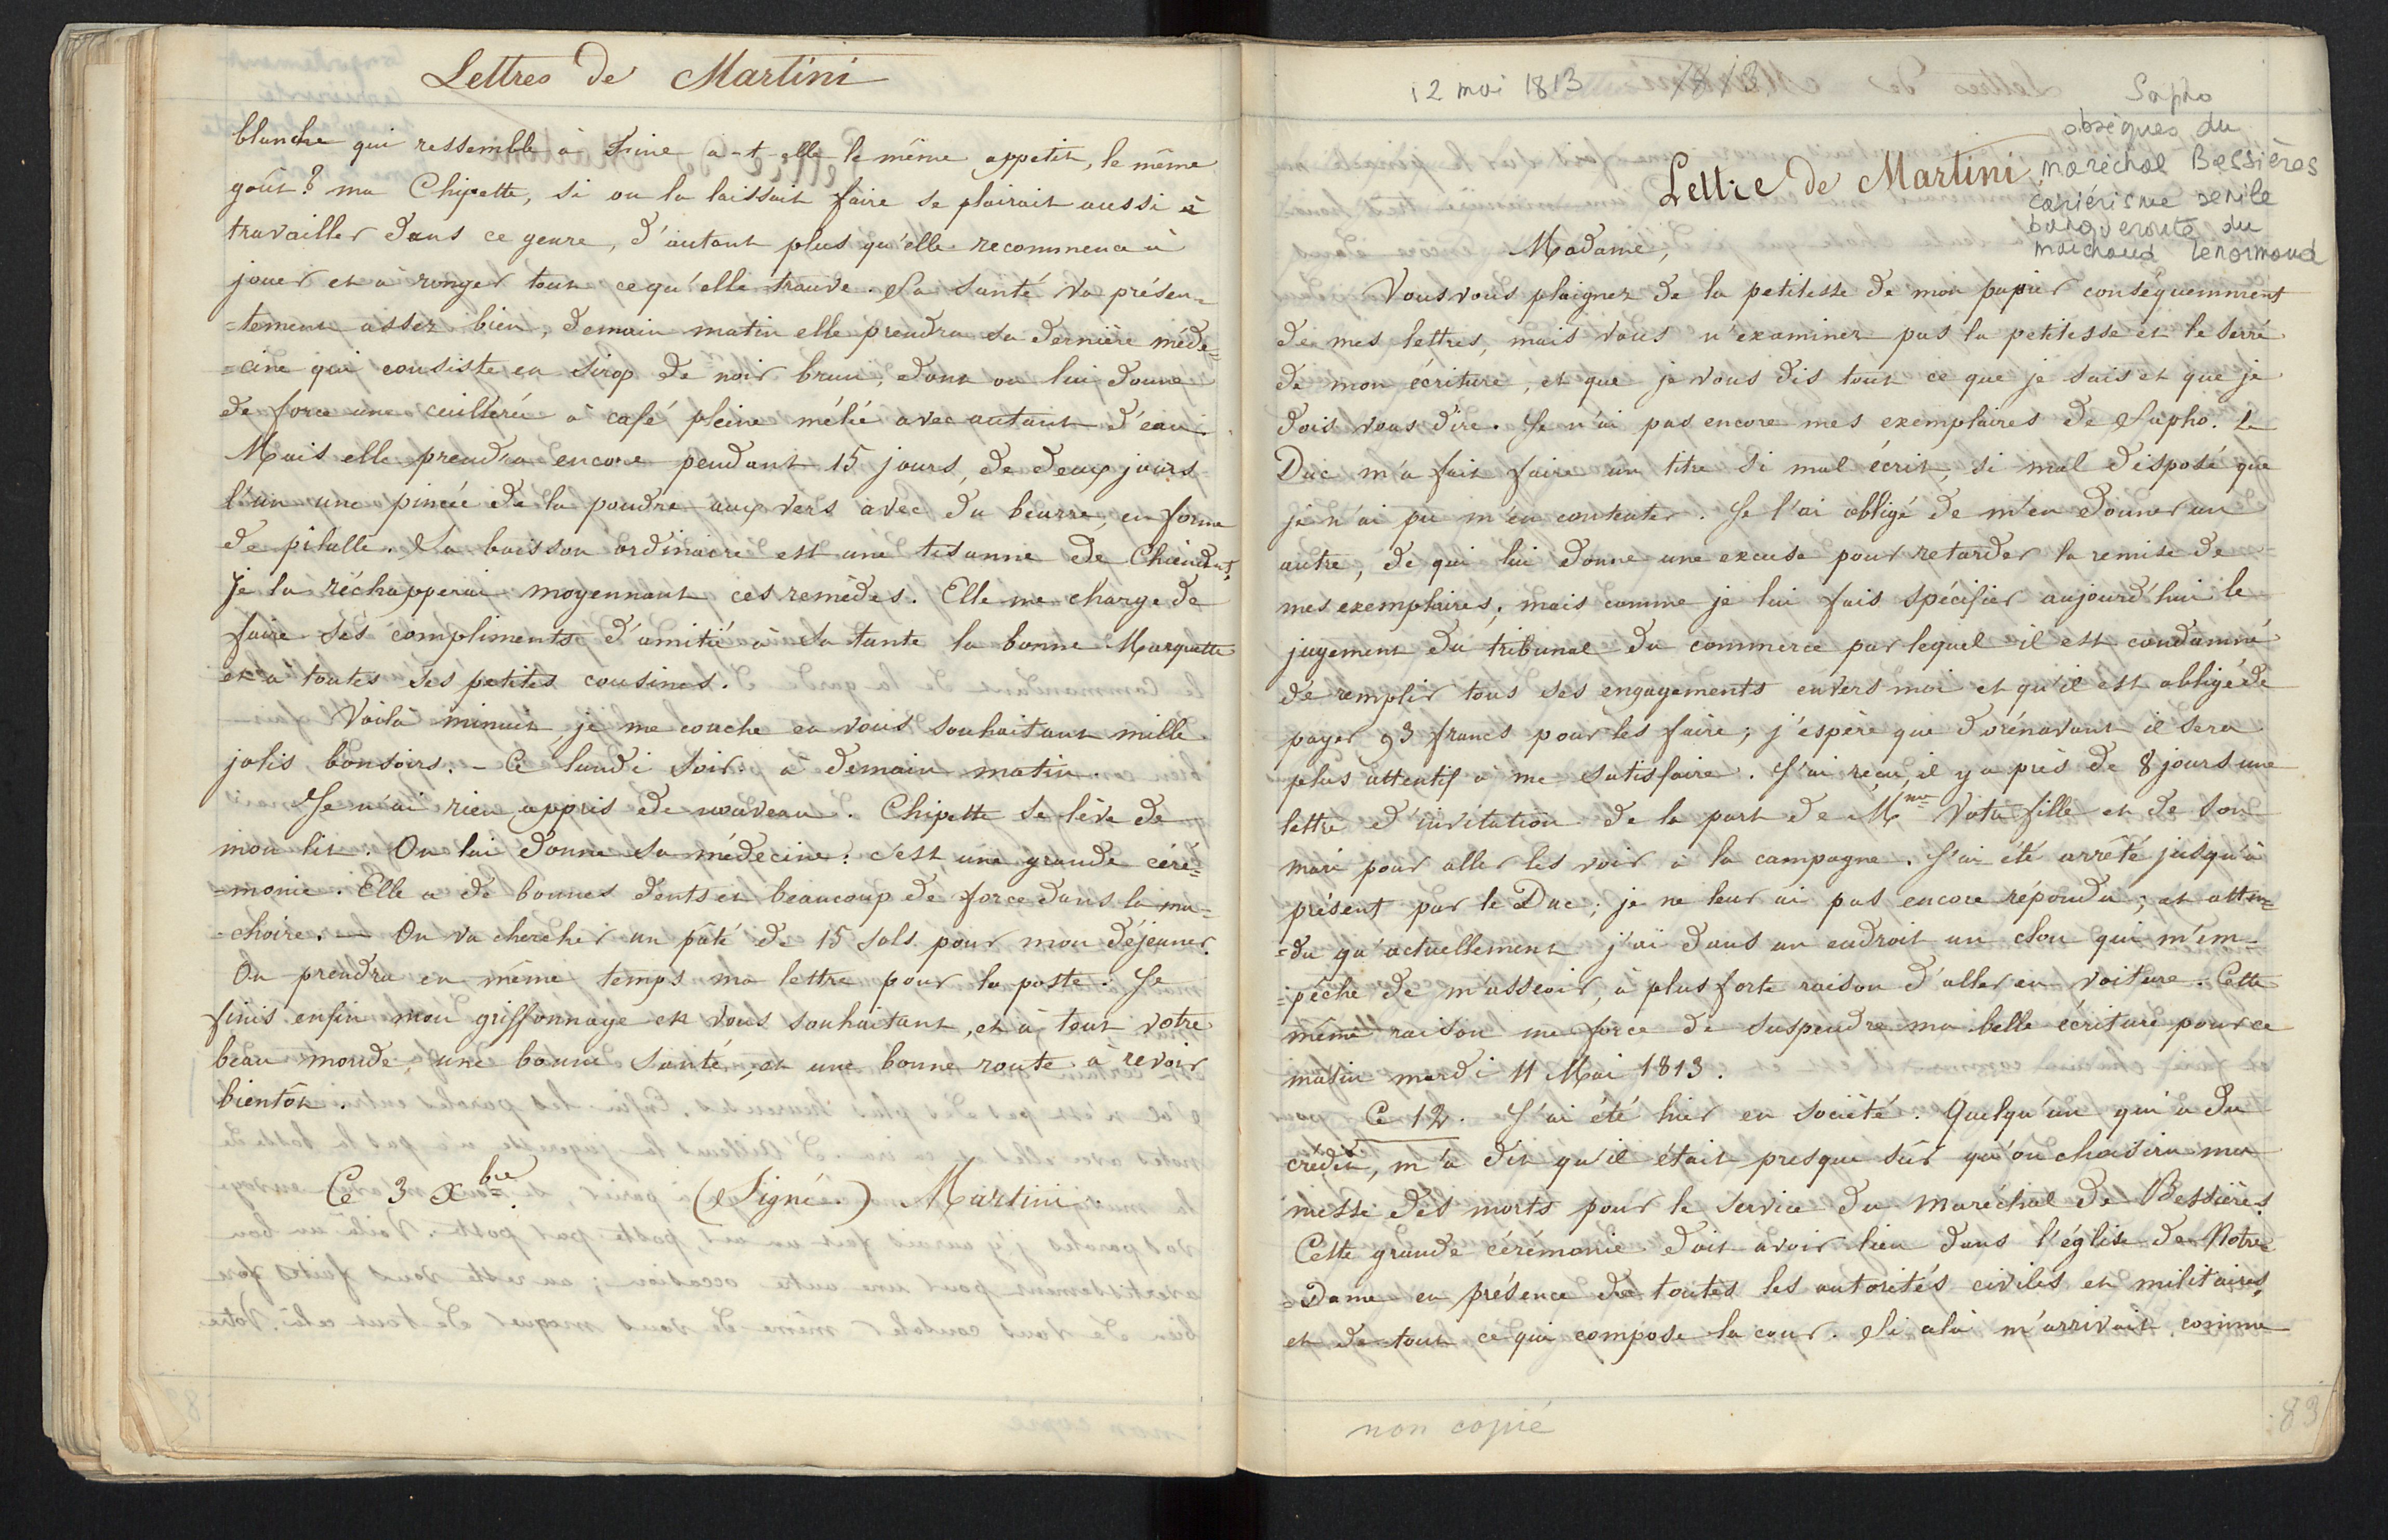 Lettres de Martini
blanche qui ressemble à Fine a-t-elle le même appetit, le même
goût ? ma Chipette, si on la laissait faire se plairait aussi à
travailler dans ce genre, d'autant plus qu'elle recommence à
jouer et à ronger tout ce qu'elle trouve. Sa santé va présen=
=tement assez bien, demain matin elle prendra sa dernière méde=
=cine qui consiste en sirop de noir brun, dont on lui donne
de force une ceuillerée à café pleine mêlée avec autant d'eau.
Mais elle prendra encore pendant 15 jours, de deux jours
l'un une pincée de la poudre aux vers avec du beurre, en forme
de pilulle. Sa boisson ordinaire est une tisanne de Chiendent,
Je la réchapperai moyennant ces remèdes. Elle me charge de
faire ses compliments d'amitié à sa tante la bonne Marquette
et à toutes ses petites cousines.
Voilà minuit je me couche en vous souhaitant mille
jolis bonsoirs. - Ce lundi soir. à demain matin.
Je n'ai rien appris de nouveau. Chipette se lève de
mon lit. On lui donne sa médecine : c'est une grande céré=
=monie. Elle a de bonnes dents et beaucoup de force dans la ma=
=choire. — On va chercher un pâté de 15 sols pour mon déjeuner.
On prendra en même temps ma lettre pour la poste. Je
finis enfin mon griffonnage en vous souhaitant, et à tout votre
beau monde, une bonne santé, et une bonne route à revoir
bientôt.
Ce 3 Xbre. (Signé.) Martini
12 mai 1813
Sapho
obsèques du
maréchal Bessières
banqueroute du
marchand Lenormand
Lettre de Martini
Madame,
Vous vous plaignez de la petitesse de mon papier conséquemment
de mes lettres, mais vous n'examinez pas la petitesse et le serré
de mon écriture, et que je vous dis tout ce que je sais et que je
dois vous dire. Je n'ai pas encore mes exemplaires de Sapho. Le
Duc m'a fait faire un titre si mal écrit, si mal disposé que
je n'ai pu m'en contenter. Je l'ai obligé de m'en donner un
autre, de qui lui donne une excuse pour retarder la remise de
mes exemplaires, mais comme je lui fais spécifier aujourd'hui le
jugement du tribunal du commerce par lequel il est condamné
de remplir tous ses engagements envers moi et qu'il est obligé de
payer 93 francs pour les faire ; j'espère que dorénavant il sera
plus attentif à me satisfaire. J'ai reçu, il y a près de 8 jours une
lettre d'invitation de la part de Mme Votre fille et de son
mari pour aller les voir à la campagne. J'ai été arrêté jusqu'à
présent par le Duc ; je ne leur ai pas encore répondu ; et atten=
=du qu'actuellement j'ai dans un endroit un clou qui m'em=
=pêche de m'asseoir, à plus forte raison d'aller en voiture. Cette
même raison me force de suspendre ma belle écriture pour ce
matin mardi 11 Mai 1813.
Ce 12. J'ai été hier en société. Quelqu'un qui a du
crédit, m'a dit qu'il était presque sûr qu'on choisira ma
messe des morts pour le service du maréchal de Bessières.
Cette grande cérémonie doit avoir lieu dans l'église de Notre=
=Dame en présence de toutes les autorités civiles et militaires,
et de tout ce qui compose la cour. Si cela m'arrivait comme
non copié
83